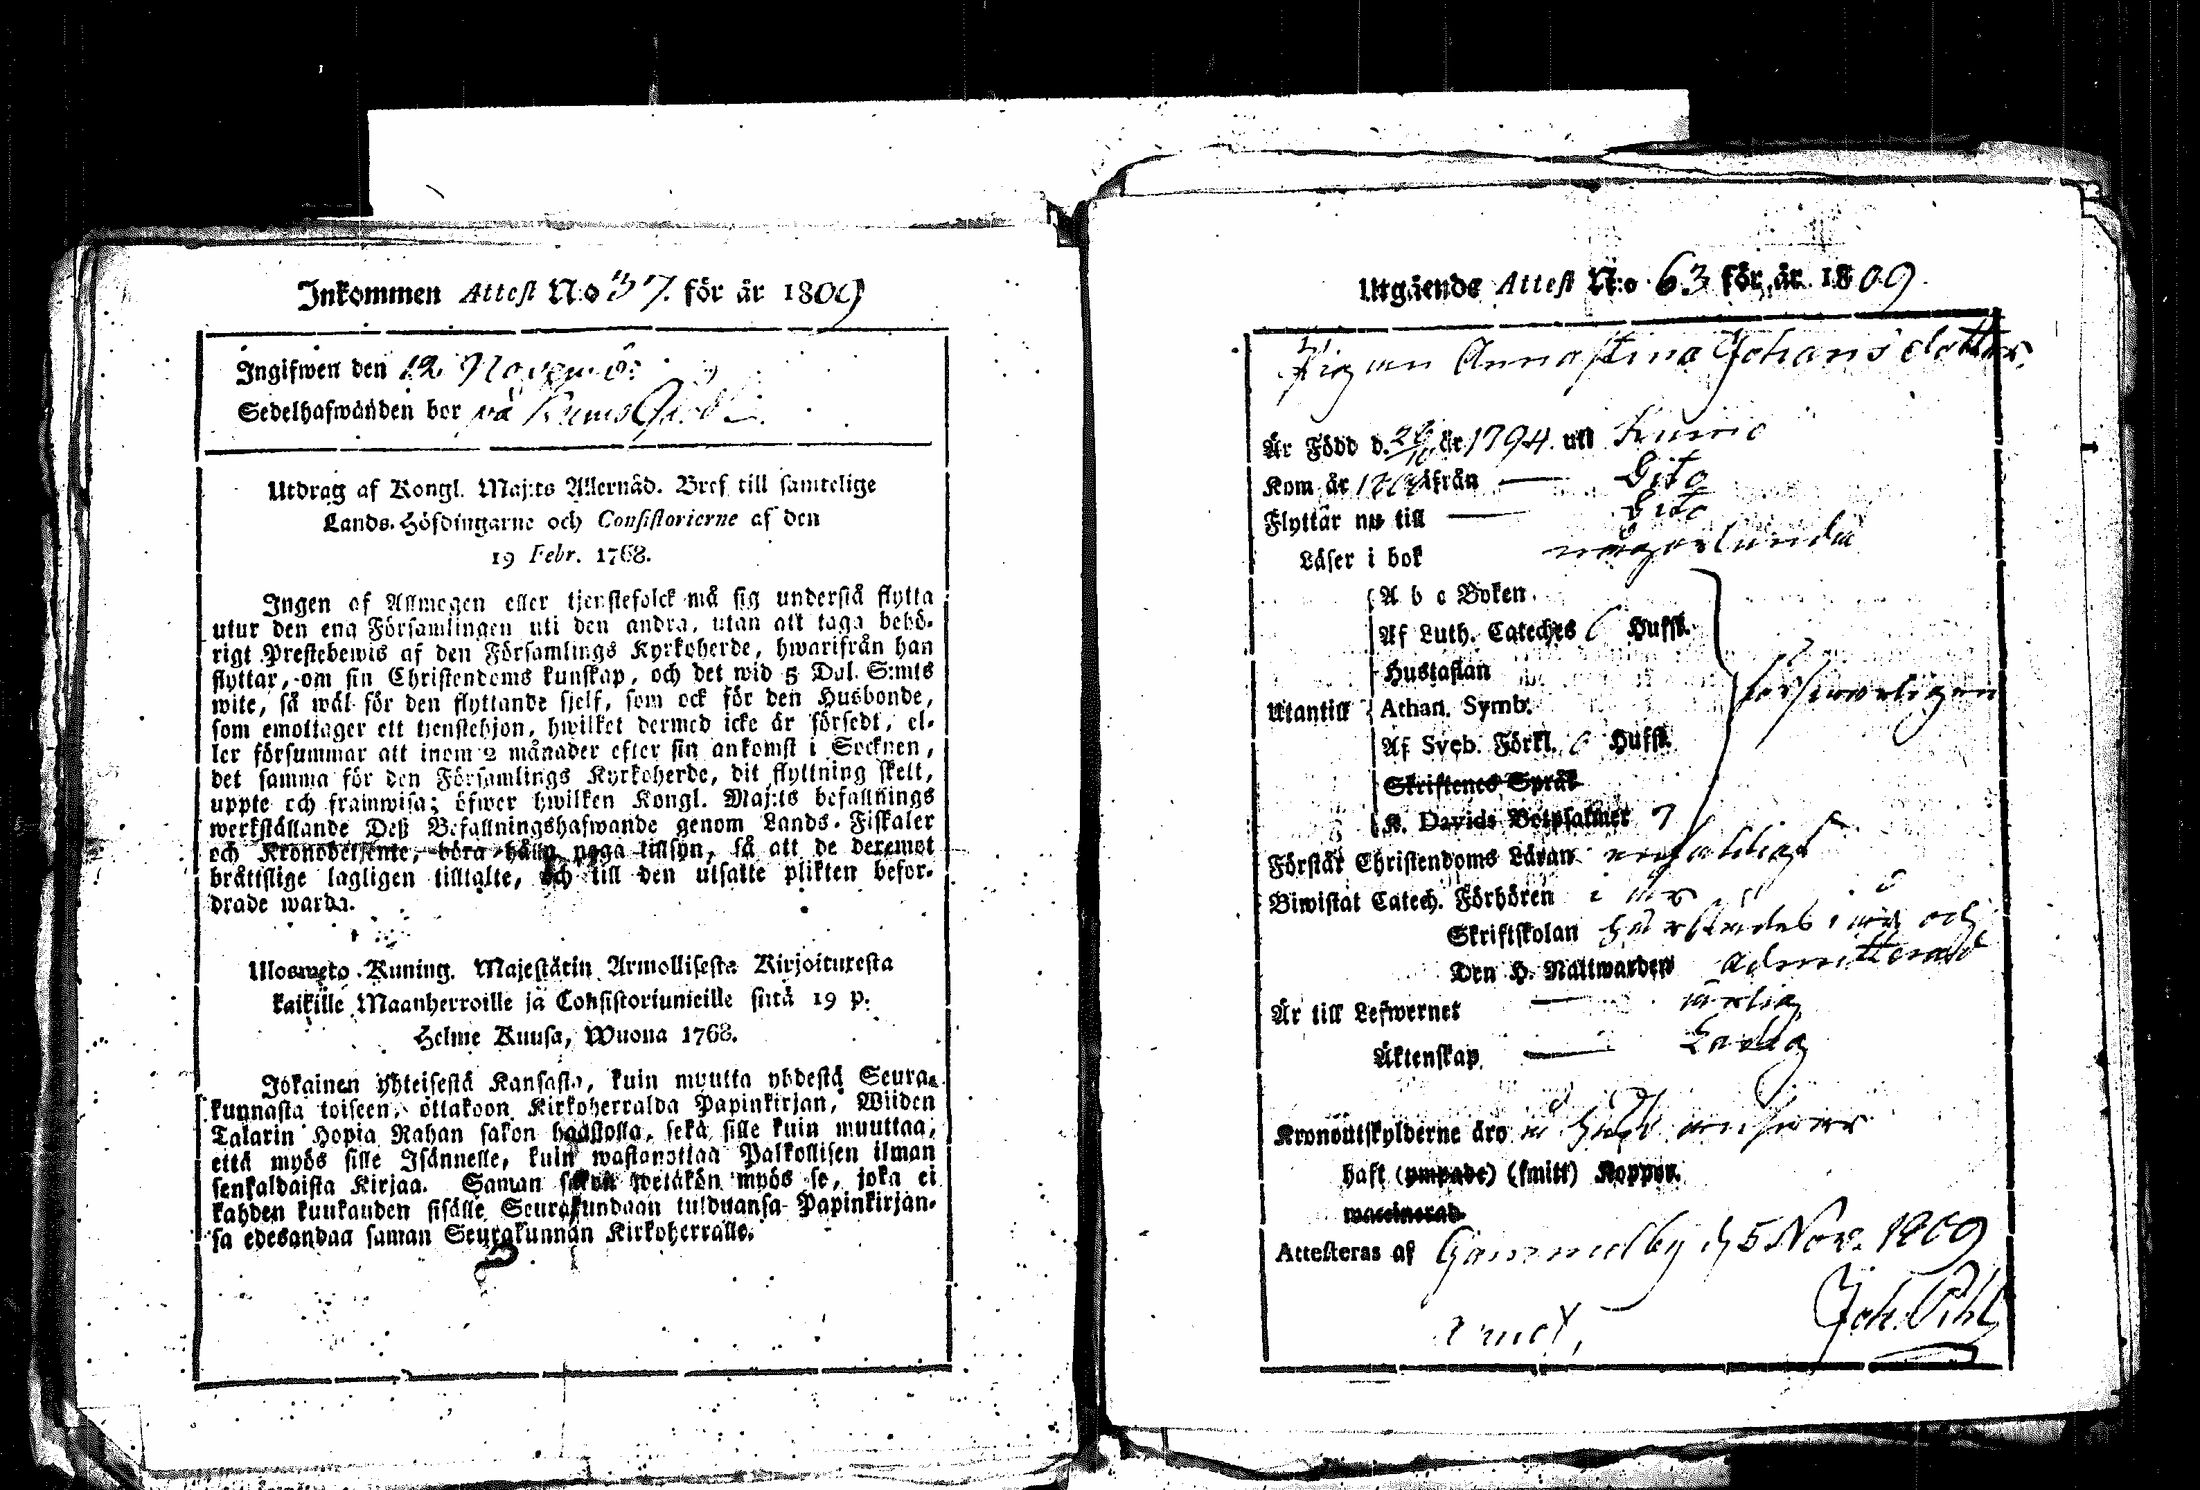 Inkommen Attest N:o 37. för år 1809
Ingifwen den 12 Novemb:
Sedelhafwanden bor på Kumo
Utdrag af Kongl. Maj:ts Allernåd. Bref till samtelige
Lands-Höfdingarne och Consistorierne af den
19 Febr. 1768.
Ingen af Allmogen eller tjenstefolck må sig understå flytta
utur den ena Församlingen uti den andra, utan att taga behö-
rigt Prestebewis af den Församlings Kyrkoherde, hwarifrån han
flyttar, om sin Christendoms kunskap, och det wid 5 Dal. S:mts
wite, så wäl för den flyttande sjelf, som ock för den Husbonde,
som emottager ett tjenstehjon, hwilket dermed icke är försedt, el-
ler försummar att inom 2 månader efter sin ankomst i Socknen,
det samma för den Församlings Kyrkoherde, dit flyttning skett,
uppte och framwisa; öfwer hwilken Kongl. Maj:ts befallnings
werkställande Deß Befallningshafwande genom Lands-Fiskaler
och Kronobetjente, böra hålla noga tillsyn, så att de deremot
bråttslige lagligen tilltalte, och till den utsatte plikten befor-
drade warda.
Ulosweto Kuning. Majestätin Armollisesta Kirjoituxesta
kaikille Maanherroille ja Consistoriumeille siitä 19 p.
Helme Kuusa, Wuona 1768.
Jokainen yhteisestä Kansasta, kuin muutta yhdestä Seura-
kunnasta toiseen, ottakoon Kirkoherralda Papinkirjan, Wiiden
Talarin Hopia Rahan sakon haastolla, sekä sille kuin muuttaa,
että myös sille Isännelle, kuin wastanottaa Palkollisen ilman
senkaldaista Kirjaa. Saman sakon wetäkön myös se, joka ei
kahden kuukauden sisälle Seurakundaan tulduansa Papinkirjan-
sa edesandaa saman Seurakunnan Kirkoherralle.
Utgående Attest N:o 63 för år 1809.
Pigan Anna Stina Johansdotter
Är Född d. 26/10 år 1794 uti Kumo
Kom år ifrån — Dito
Flyttar nu till — Dito
Läser i bok någorlunda
A b c Boken
Af Luth. Cateches 6 Huffst.
Hustaflan
Utantill Athan. Symb. försvarligen
Af Sveb. Förkl. 6 Huffst.
Skriftenes Språk
K. Davids Botpsalmer 7
Förstår Christendoms Läran enfaldigt
Biwistat Catech. Förhören i år
Skriftskolan härstädes i år och
Den H. Nattwarden admitterad
Är till Lefwernet — ärlig
Äktenskap — Ledig
Kronoutskylderne äro
haft (ympade) (smitt) Koppor.
waccinerad.
Attesteras af Gammelby d. 5 Nov. 1809
Joh. Pihl